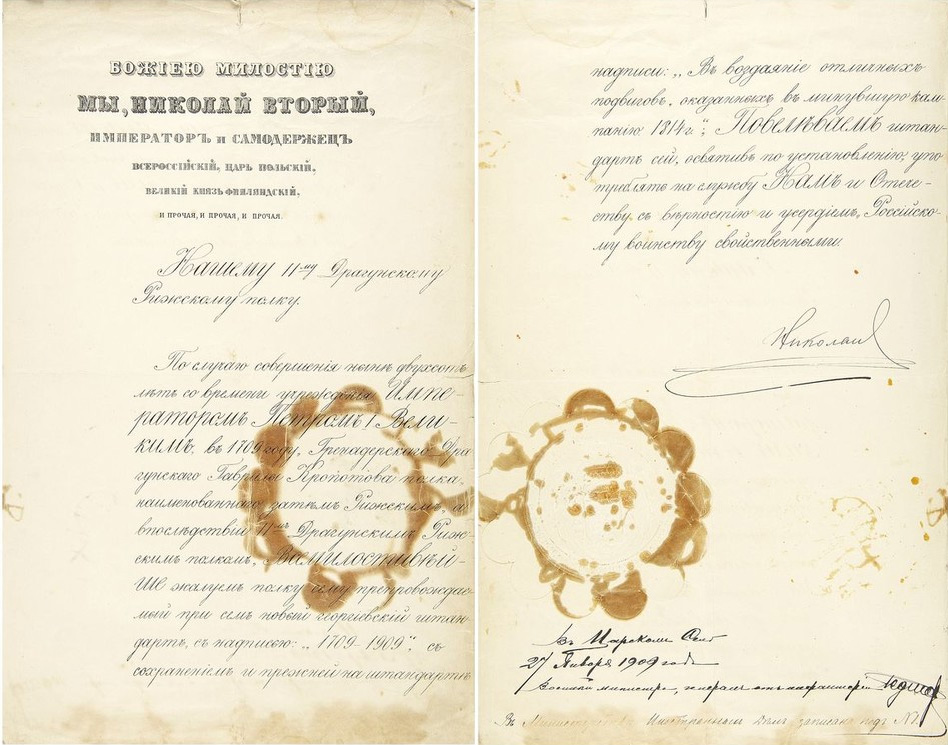 БОЖІЕЮ МИЛОСТІЮ
МЫ, НИКОЛАЙ ВТОРЫЙ,
ИМПЕРАТОРЪ и САМОДЕРЖЕЦЪ
ВСЕРОССІЙСКІЙ, ЦАРЬ ПОЛЬСКІЙ,
ВЕЛИКІЙ КНЯЗЬ ФИНЛЯНДСКІЙ,
И ПРОЧАЯ, И ПРОЧАЯ, И ПРОЧАЯ.
Нашему 11-му Драгунскому
Рижскому полку.
По случаю совершенія нынѣ двухсотъ
лѣтъ со времени учрежденія Импе-
раторомъ Петромъ I Вели-
кимъ, въ 1709 году, Гренадерскаго Дра
гунскаго Гавриила Кропотова полка,
наименованнаго затѣмъ Рижскимъ, а
впослѣдствіи 11мъ Драгунскимъ Риж-
скимъ полкомъ, Всемилостивѣй-
ше жалуемъ полку сему препровождае
мый при семъ новый георгіевскій штан
дартъ, съ надписью: „1709-1909", съ
сохраненіемъ и прежней на штандартѣ
надписи: „Въ воздаяніе отличныхъ
подвиговъ, оказанныхъ въ минувшую кам-
панію 1814г."; Повелѣваемъ штан-
дартъ сей, освятивъ по установленію, упо
треблять на службу Намъ и Отече-
ству съ вѣрностію и усердіемъ, Россійско-
му воинству свойственными.
Николай
Въ Царскомъ Селѣ
27 Января 1909 года
Военный министръ, генералъ отъ инфантеріи
Въ Министерствѣ Иностранныхъ Дѣлъ записана подъ №